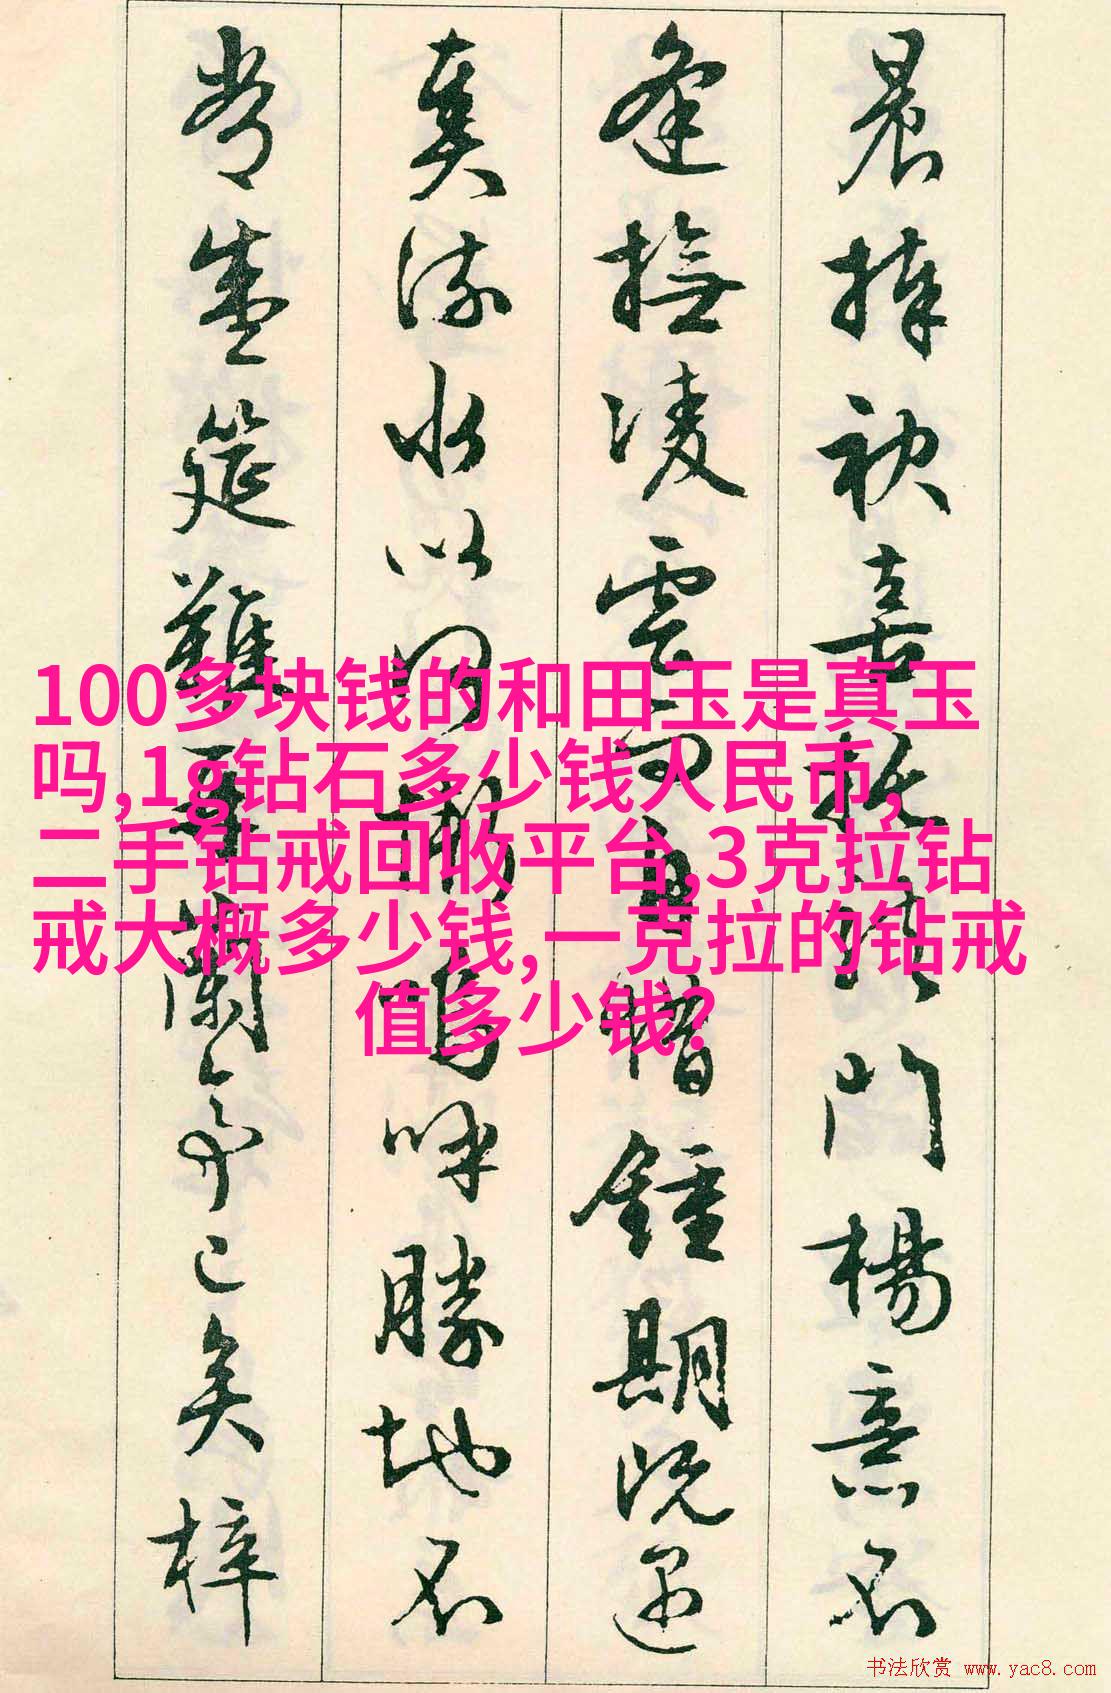 晨捧袂喜托龍門楊意不
逢撫凌雲而自惜鍾期既遇
奏流水以何慚嗚呼勝地不
常盛筵難再蘭亭已矣梓
100多块钱的和田玉是真玉
吗,1g钻石多少钱人民币,
二手钻戒回收平台,3克拉钻
戒大概多少钱,一克拉的钻戒
值多少钱?
书法欣赏 www.yac8.com